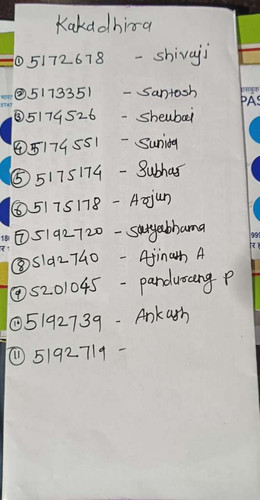 Kakadhira
① 5172678 - Shivaji
② 5173351 - Santosh
③ 5174526 - Sheubai
④ 5174551 - Sunita
⑤ 5175174 - Subhas
⑥ 5175178 - Arjun
⑦ 5192720 - Satyabhama
⑧ 5192740 - Ajinath A
⑨ 5201045 - pandurang P
⑩ 5192739 - Ankush
⑪ 5192719 -